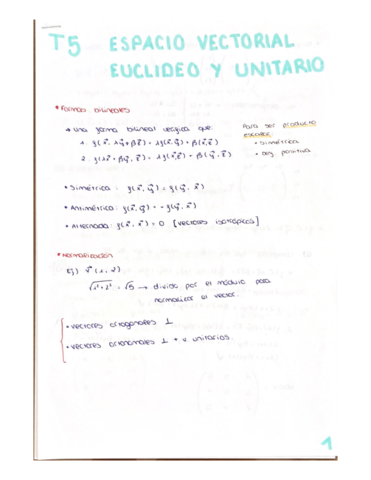 T5 ESPACIO VECTORIAL
EUCLIDEO Y UNITARIO
* Formas bilineales
→ Una forma bilineal verifica que:
1. g(x⃗, λy⃗+βz⃗) = λg(x⃗,y⃗)+β(x⃗,z⃗)
2. g(λx⃗+βy⃗, z⃗) = λg(x⃗,z⃗) + β(y⃗,z⃗)
Para ser producto
escalar:
• Simétrica
• def positiva
• Simétrica: g(x⃗,y⃗) = g(y⃗,x⃗)
• Antimétrica: g(x⃗,y⃗) = -g(y⃗,x⃗)
• Alternada: g(x⃗,x⃗) = 0 [vectores isotrópicos]
* Normalización
Ej) v⃗ (1,2)
√1²+2² = √5 → divide por el módulo para
normalizar el vector.
• vectores ortogonales ⊥
• vectores ortonormales ⊥ + v. unitarios.
1